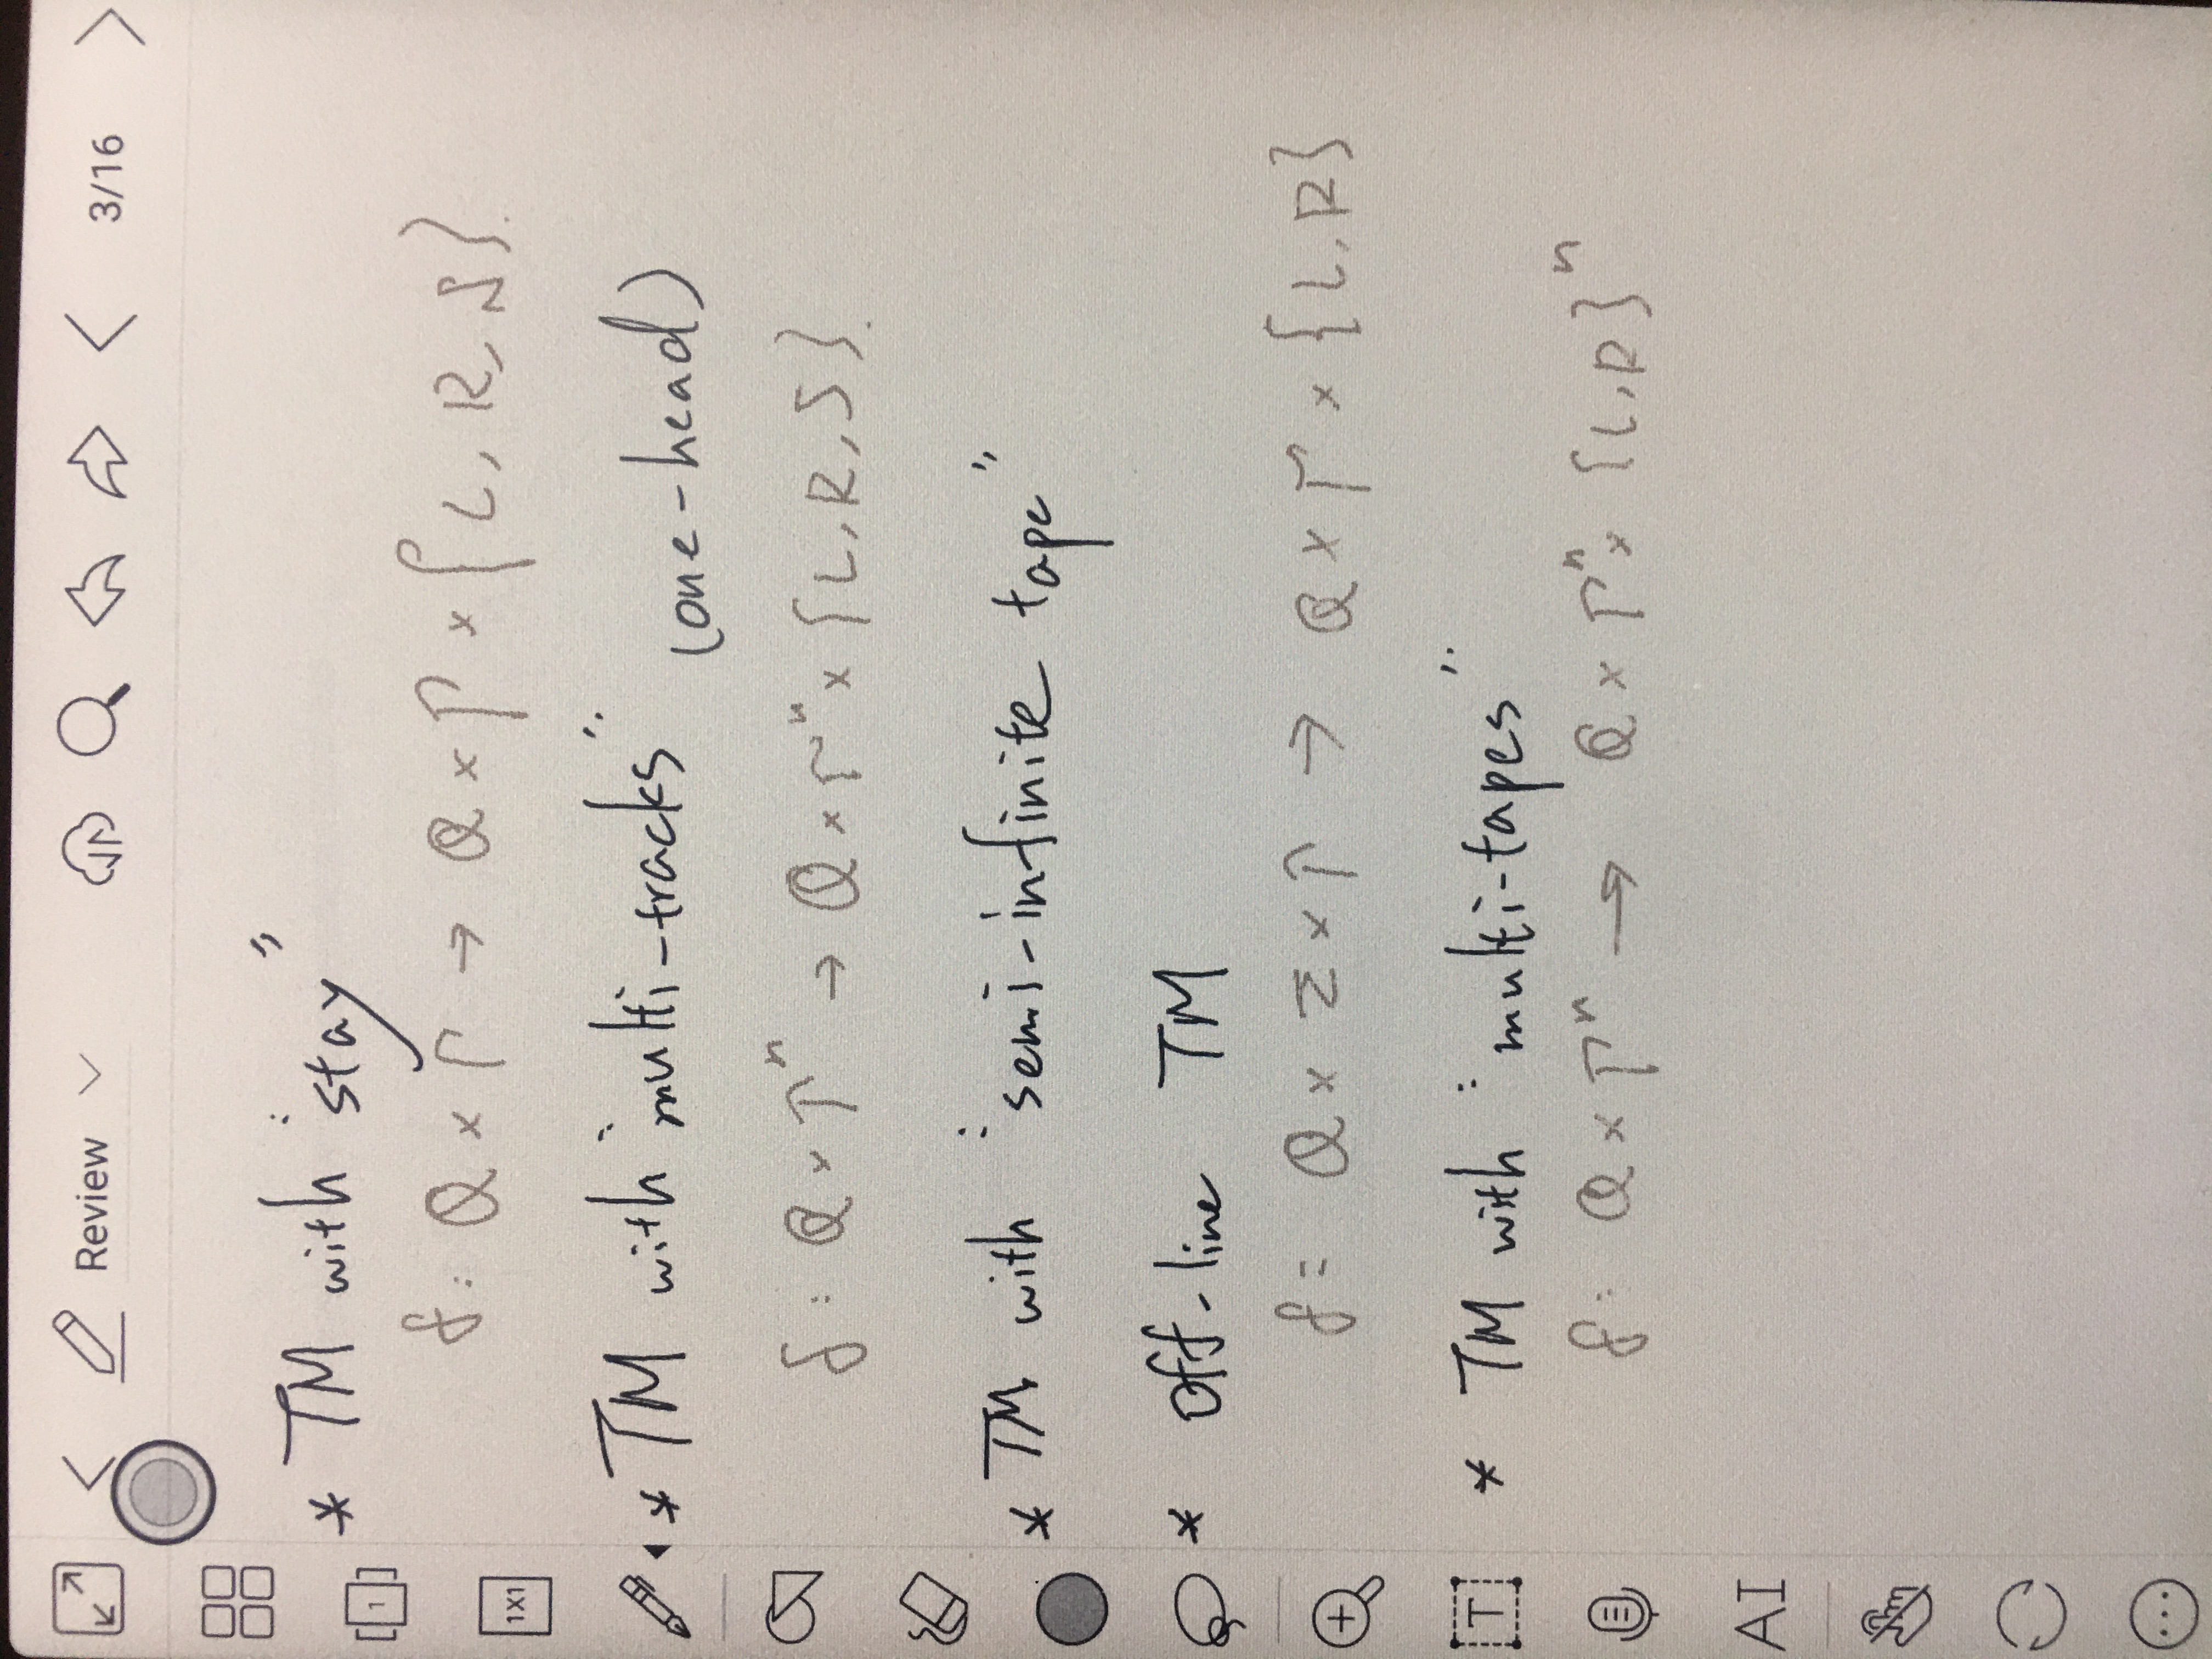 Review 3/16
* TM with "stay"
δ: Q × Γ → Q × Γ × {L, R, S}.
* TM with "multi-tracks" (one-head)
δ: Q × Γⁿ → Q × Γⁿ × {L, R, S}.
* TM with "semi-infinite tape"
* Off-line TM
δ: Q × Σ × Γ → Q × Γ × {L, R}
* TM with "multi-tapes"
δ: Q × Γⁿ → Q × Γⁿ × {L, R}ⁿ
1
1X1
T
AI